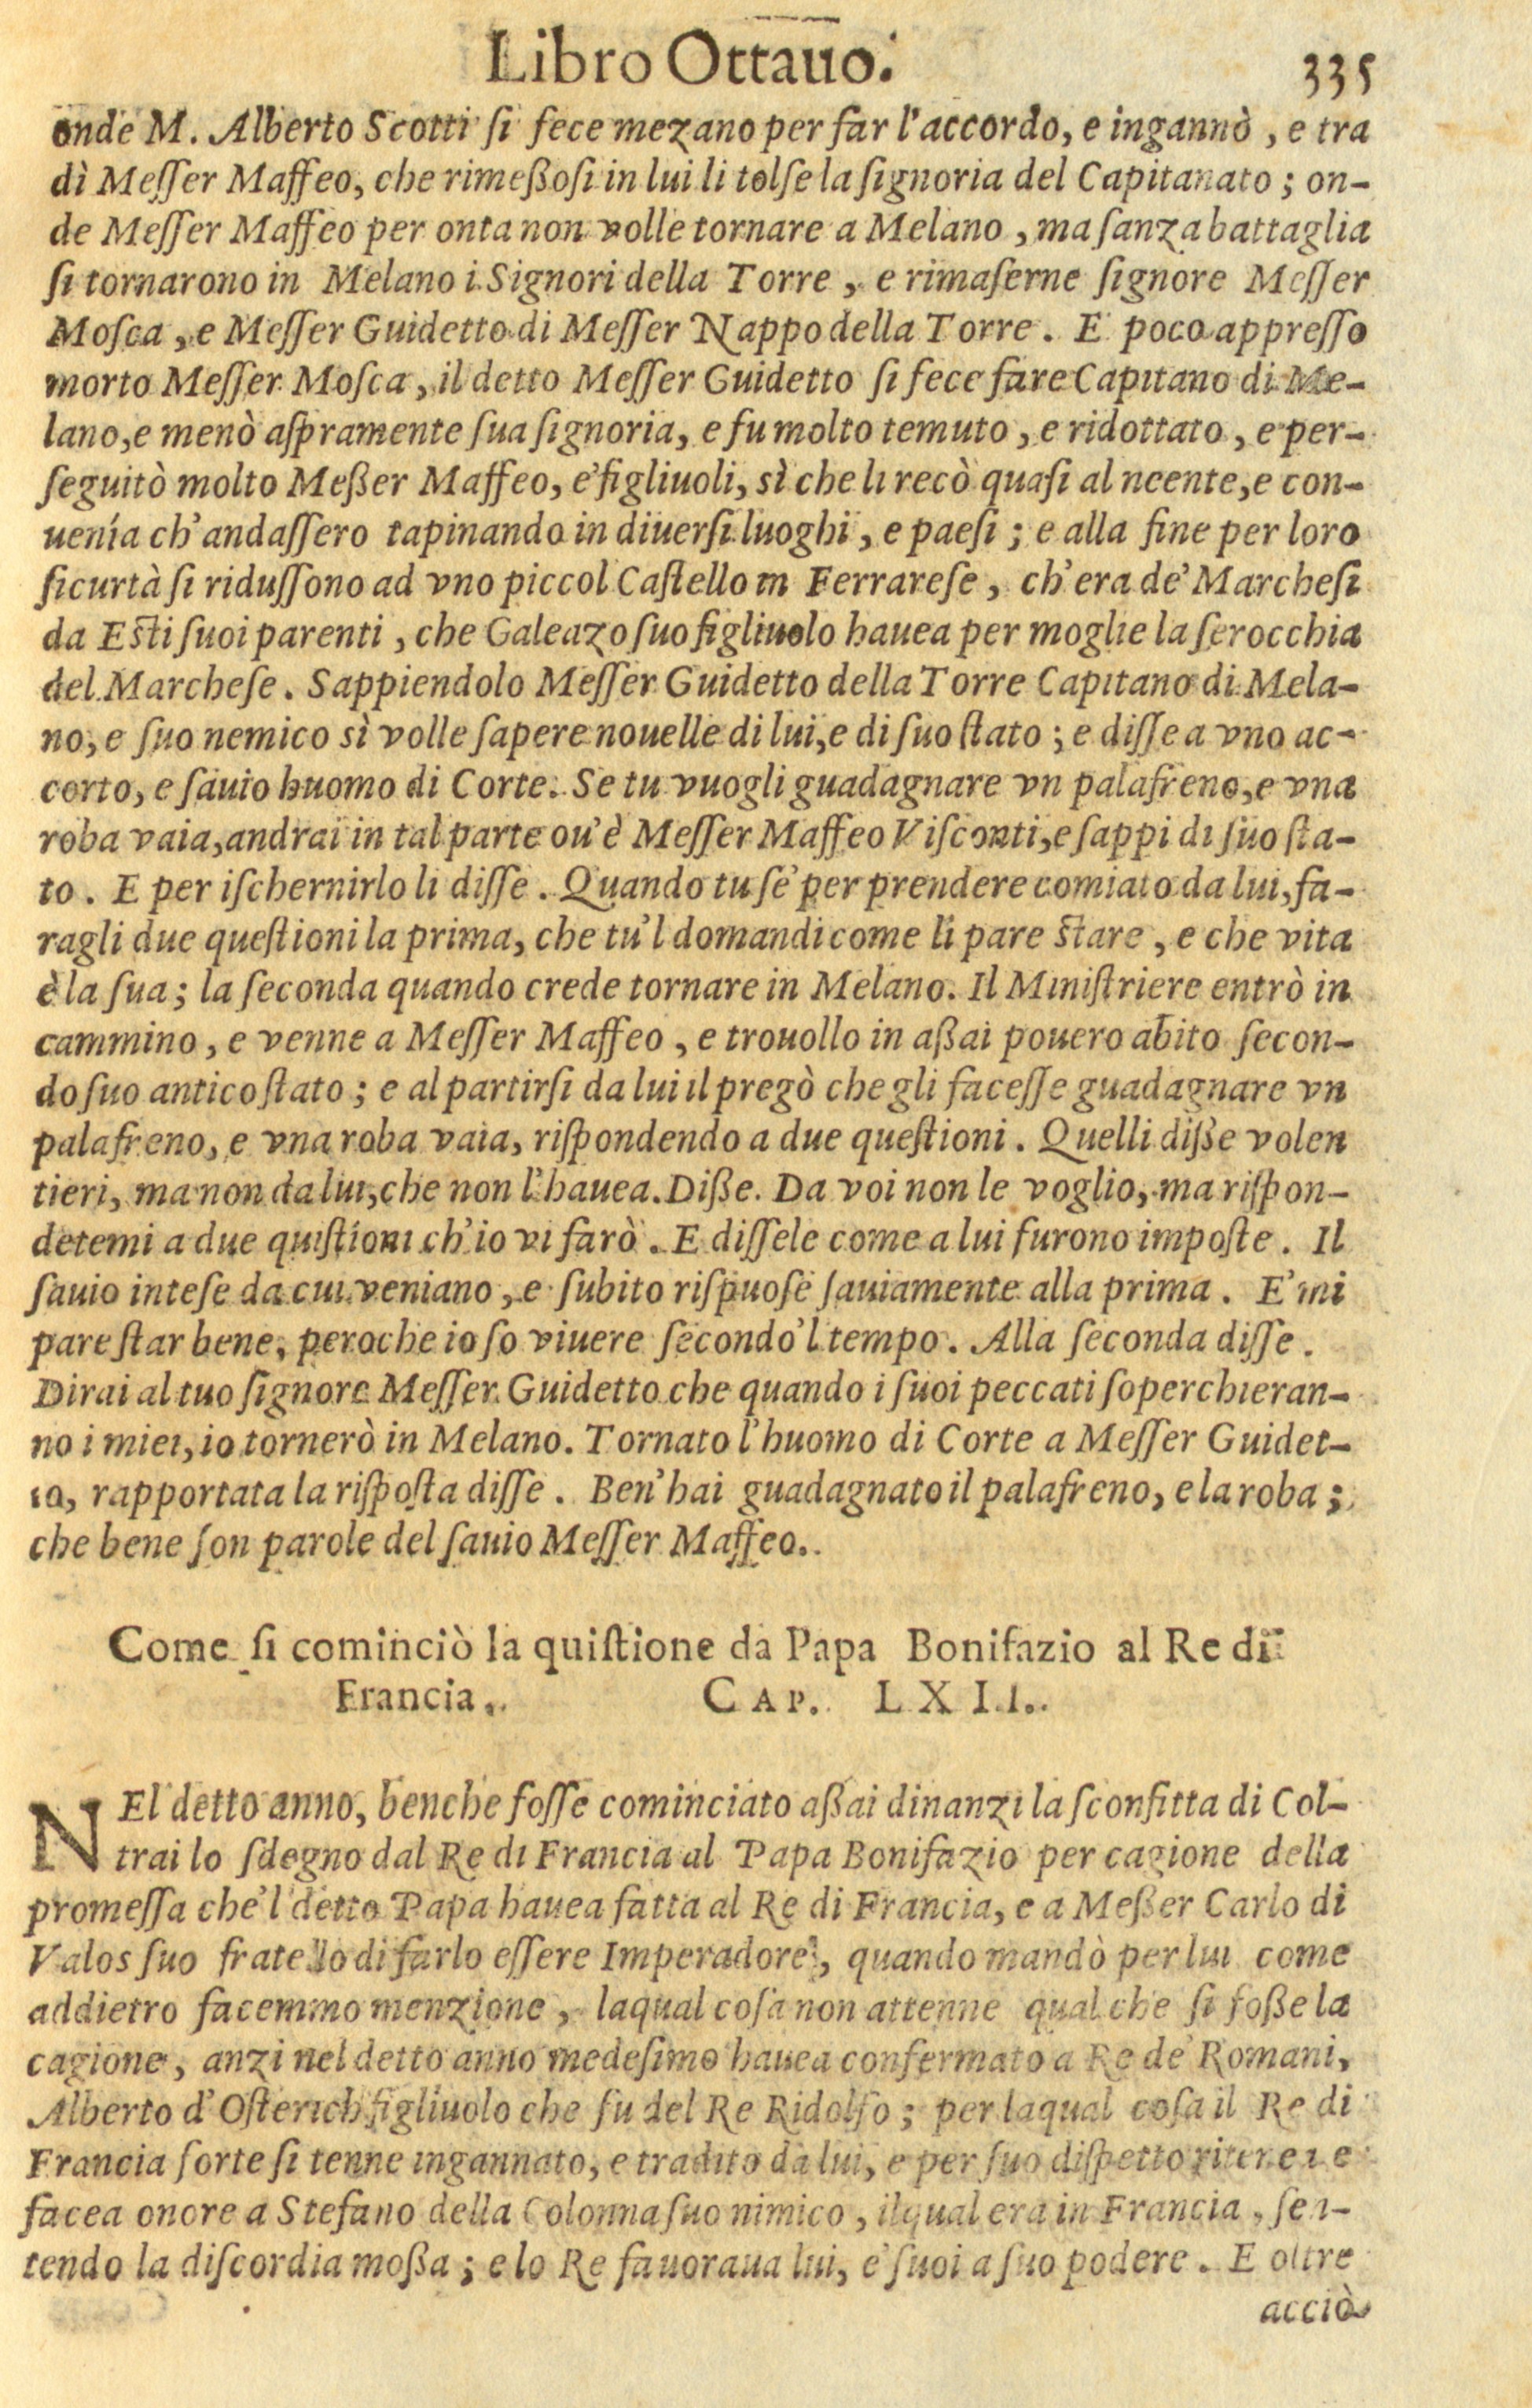 Libro Ottauo. 335
onde M. Alberto Scotti si fece mezano per far l'accordo, e ingannò, e tra
dì Messer Maffeo, che rimeßosi in lui li tolse la signoria del Capitanato; on-
de Messer Maffeo per onta non volle tornare a Melano, ma sanza battaglia
si tornarono in Melano i Signori della Torre, e rimaserne signore Messer
Mosca, e Messer Guidetto di Messer Nappo della Torre. E poco appresso
morto Messer Mosca, il detto Messer Guidetto si fece fare Capitano di Me-
lano, e menò aspramente sua signoria, e fu molto temuto, e ridottato, e per-
seguitò molto Meßer Maffeo, e' figliuoli, sì che li recò quasi al neente, e con-
uenía ch'andassero tapinando in diuersi luoghi, e paesi; e alla fine per loro
sicurtà si ridussono ad vno piccol Castello in Ferrarese, ch'era de' Marchesi
da Esti suoi parenti, che Galeazo suo figliuolo hauea per moglie la serocchia
del Marchese. Sappiendolo Messer Guidetto della Torre Capitano di Mela-
no, e suo nemico sì volle sapere nouelle di lui, e di suo stato; e disse a vno ac-
corto, e sauio huomo di Corte. Se tu vuogli guadagnare vn palafreno, e vna
roba vaia, andrai in tal parte ou'è Messer Maffeo Visconti, e sappi di suo sta-
to. E per ischernirlo li disse. Quando tu se' per prendere comiato da lui, fa-
ragli due questioni la prima, che tu'l domandi come li pare stare, e che vita
è la sua; la seconda quando crede tornare in Melano. Il Ministriere entrò in
cammino, e venne a Messer Maffeo, e trouollo in aßai pouero abito secon-
do suo antico stato; e al partirsi da lui il pregò che gli facesse guadagnare vn
palafreno, e vna roba vaia, rispondendo a due questioni. Quelli diße volen
tieri, ma non da lui, che non l'hauea. Diße. Da voi non le voglio, ma rispon-
detemi a due quistioni ch'io vi farò. E dissele come a lui furono imposte. Il
sauio intese da cui veniano, e subito rispuose sauiamente alla prima. E' mi
pare star bene, peroche io so viuere secondo'l tempo. Alla seconda disse.
Dirai al tuo signore Messer Guidetto che quando i suoi peccati soperchieran-
no i miei, io tornerò in Melano. Tornato l'huomo di Corte a Messer Guidet-
to, rapportata la risposta disse. Ben'hai guadagnato il palafreno, e la roba;
che bene son parole del sauio Messer Maffeo.
Come si cominciò la quistione da Papa Bonifazio al Re di
Francia. CAP. LXII.
NEl detto anno, benche fosse cominciato aßai dinanzi la sconfitta di Col-
trai lo sdegno dal Re di Francia al Papa Bonifazio per cagione della
promessa che'l detto Papa hauea fatta al Re di Francia, e a Meßer Carlo di
Valos suo fratello di farlo essere Imperadore, quando mandò per lui come
addietro facemmo menzione, laqual cosa non attenne qual che si foße la
cagione, anzi nel detto anno medesimo hauea confermato a Re de' Romani,
Alberto d'Osterich figliuolo che fu del Re Ridolfo; per laqual cosa il Re di
Francia forte si tenne ingannato, e tradito da lui, e per suo dispetto ritenea e
facea onore a Stefano della Colonna suo nimico, ilqual era in Francia, sen-
tendo la discordia moßa; e lo Re fauoraua lui, e' suoi a suo podere. E oltre
acciò